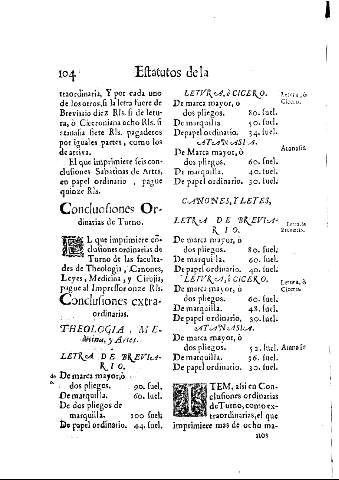 104 Estatutos de la
traordinaria, Y por cada uno
de los otros, si la letra fuere de
Breviario diez Rls. si de letu-
ra, ò Ciceroniana ocho Rls. si
atanasia siete Rls. pagaderos
por iguales partes, como los
de arriva.
El que imprimiere seis con-
clusiones Sabatinas de Artes,
en papel ordinario, pague
quinze Rls.
Conclusiones Or-
dinarias de Turno.
EL que imprimiere cō-
clusiones ordinarias de
Turno de las faculta-
des de Theologia, Canones,
Leyes, Medicina, y Cirujia,
pague al Impressor onze Rls.
Conclusiones extra-
ordinarias.
THEOLOGIA, ME-
dicina, y Artes.
LETRA DE BREVIA-
RIO.
De marca mayor, ò
dos pliegos. 90. suel.
De marquilla. 60. suel.
De dos pliegos de
marquilla. 100 suel.
De papel ordinario. 44. suel.
LETURA, ò CICERO.
De marca mayor, o
dos pliegos. 80. suel.
De marquilla 50. suel.
De papel ordinario. 34. suel.
ATANASIA.
De Marca mayor, ò
dos pliegos. 60. suel.
De marquilla. 40. suel.
De papel ordinario. 30. suel.
CANONES, Y LEYES,
LETRA DE BREVIA-
RIO.
De marca mayor, ò
dos pliegos. 80. suel.
De marquilla. 60. suel.
De papel ordinario. 40. suel.
LETURA, ò CICERO.
De marca mayor, ò
dos pliegos. 60. suel.
De marquilla. 48. suel.
De papel ordinario. 30. suel.
ATANASIA.
De marca mayor, ò
dos pliegos. 52. suel.
De marquilla. 36. suel.
De papel ordinario. 30. suel.
ITEM, assi en Con-
clusiones ordinarias
de Turno, como ex-
traordinarias, el que
imprimiere mas de ocho ma-
nos
Letura, ò
Cicero.
Atanasia
Letra de
Breviario.
Letura, ò
Cicero.
Atanasia